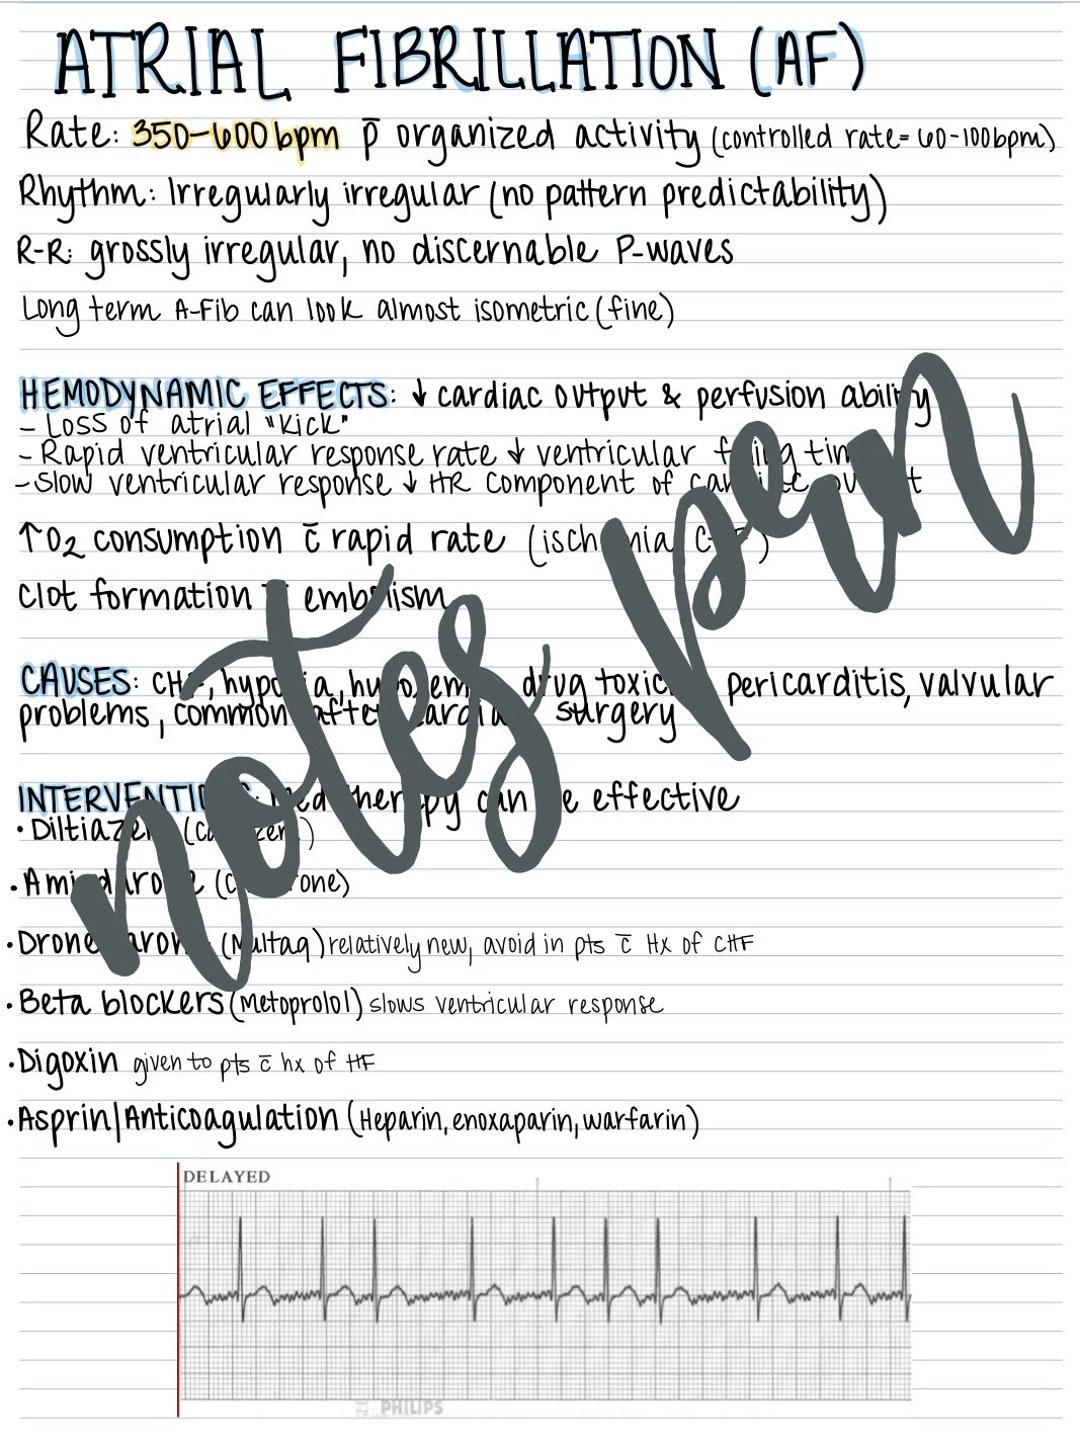 ATRIAL FIBRILLATION (AF)
Rate: 350-600bpm p̄ organized activity (controlled rate= 60-100bpm)
Rhythm: Irregularly irregular (no pattern predictability)
R-R: grossly irregular, no discernable P-waves
Long term A-Fib can look almost isometric (fine)
HEMODYNAMIC EFFECTS: ↓ cardiac output & perfusion ability
- Loss of atrial "Kick"
- Rapid ventricular response rate ↓ ventricular filling time
- Slow ventricular response ↓ HR component of cardiac output
↑O2 consumption c̄ rapid rate (ischemia,
Clot formation embolism
CAUSES: CHF, hypoxia, drug toxicity, pericarditis, valvular
problems, common after cardiac surgery
INTERVENTIONS: med therapy can be effective
• Diltiazem (cardizem)
• Amiodarone (
• Dronedarone (Multaq) relatively new, avoid in pts c̄ Hx of CHF
• Beta blockers (Metoprolol) slows ventricular response
• Digoxin given to pts c̄ hx of HF
• Asprin/Anticoagulation (Heparin, enoxaparin, warfarin)
notes pen
DELAYED
PHILIPS